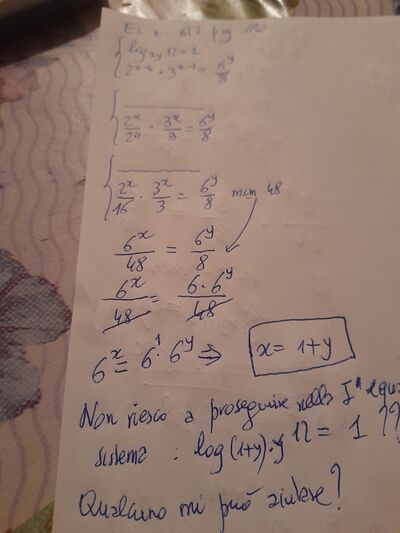 Es n 617 pag
log_xy 12 = 1
2^(x-4) · 3^(x-1) = 6^y/8
2^x/2^4 · 3^x/3 = 6^y/8
2^x/16 · 3^x/3 = 6^y/8 mcm 48
6^x/48 = 6^y/8
6^x/48 = 6·6^y/48
6^x = 6^1 · 6^y ⇒ x = 1+y
Non riesco a proseguire nella I^a
sistema : log(1+y)·y 12 = 1 ??
Qualcuno mi può aiutare?